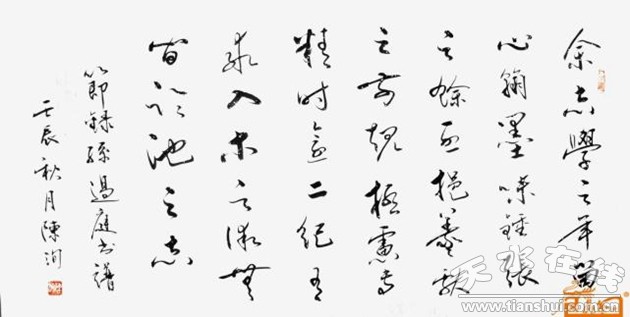 余志學之年留
心翰墨味鍾張
之餘烈挹羲獻
之前規極慮專
精時逾二紀有
乖入木之術無
間臨池之志
節錄孫過庭書譜
壬辰秋月陳
天水在线
www.tianshui.com.cn